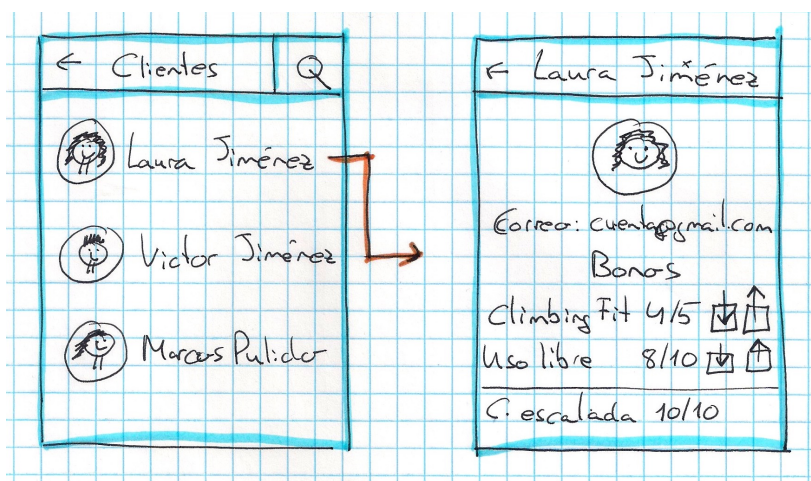 ← Clientes
Laura Jiménez
Victor Jiménez
Marcos Pulido
← Laura Jiménez
Correo: cuenta@gmail.com
Bonos
Climbing Fit 4/5
Uso libre 8/10
C. escalada 10/10